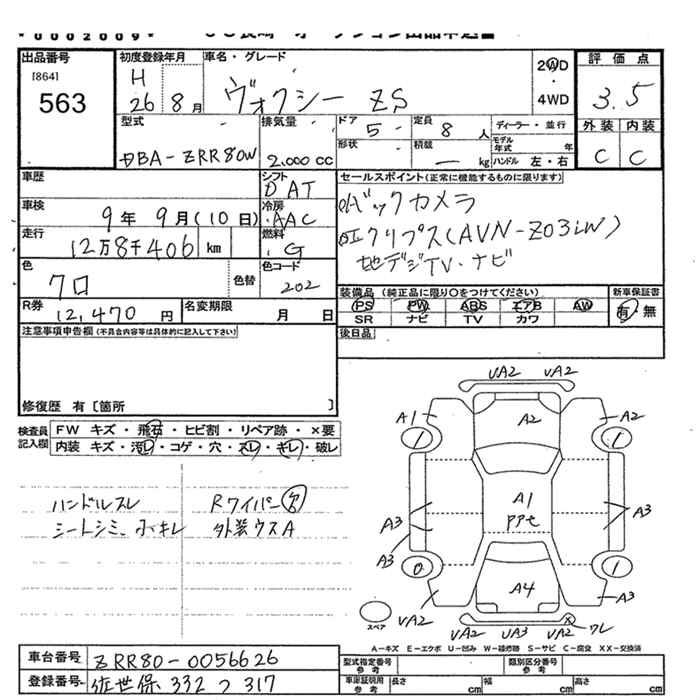 0002009
出品番号
[864]
563
初度登録年月
H
26 8月
車名・グレード
ヴォクシー ZS
2WD
4WD
評価点
3.5
外装 内装
C C
型式
DBA-ZRR80W
排気量
2,000 cc
ドア
5
形状
定員
8 人
積載
kg
ディーラー・並行
モデル年式 年
ハンドル 左・右
車歴
シフト
DAT
車検
9年 9月(10日)
冷房
AAC
走行
12万8千406 km
燃料
G
色
クロ
色替
色コード
202
セールスポイント(正常に機能するものに限ります)
バックカメラ
エクリプス(AVN-Z03iW)
地デジTV・ナビ
R券
12,470 円
名変期限
月 日
装備品(純正品に限り○をつけてください)
PS PW ABS エアB AW
SR ナビ TV カワ
新車保証書
有・無
後日品
注意事項申告欄(不具合内容等は具体的に記入して下さい)
修復歴 有〔箇所 〕
検査員記入欄
FW キズ・飛石・ヒビ割・リペア跡・×要
内装 キズ・汚レ・コゲ・穴・スレ・キレ・破レ
ハンドルスレ Rワイパー欠
シートシミ、小キレ 外装ウスA
UA2 UA2
A1 A2 A2
1 1
A1
A3 A3
A3
0 1
A4
A3
UA2
UA2 UA3 UA2 ワレ
スペア
A-キズ E-エクボ U-凹み W-補修跡 S-サビ C-腐食 XX-交換済
車台番号
ZRR80-0056626
登録番号
佐世保 332 つ 317
型式指定番号
参考
類別区分番号
参考
車庫証明用
参考
長さ cm
幅 cm
高さ cm